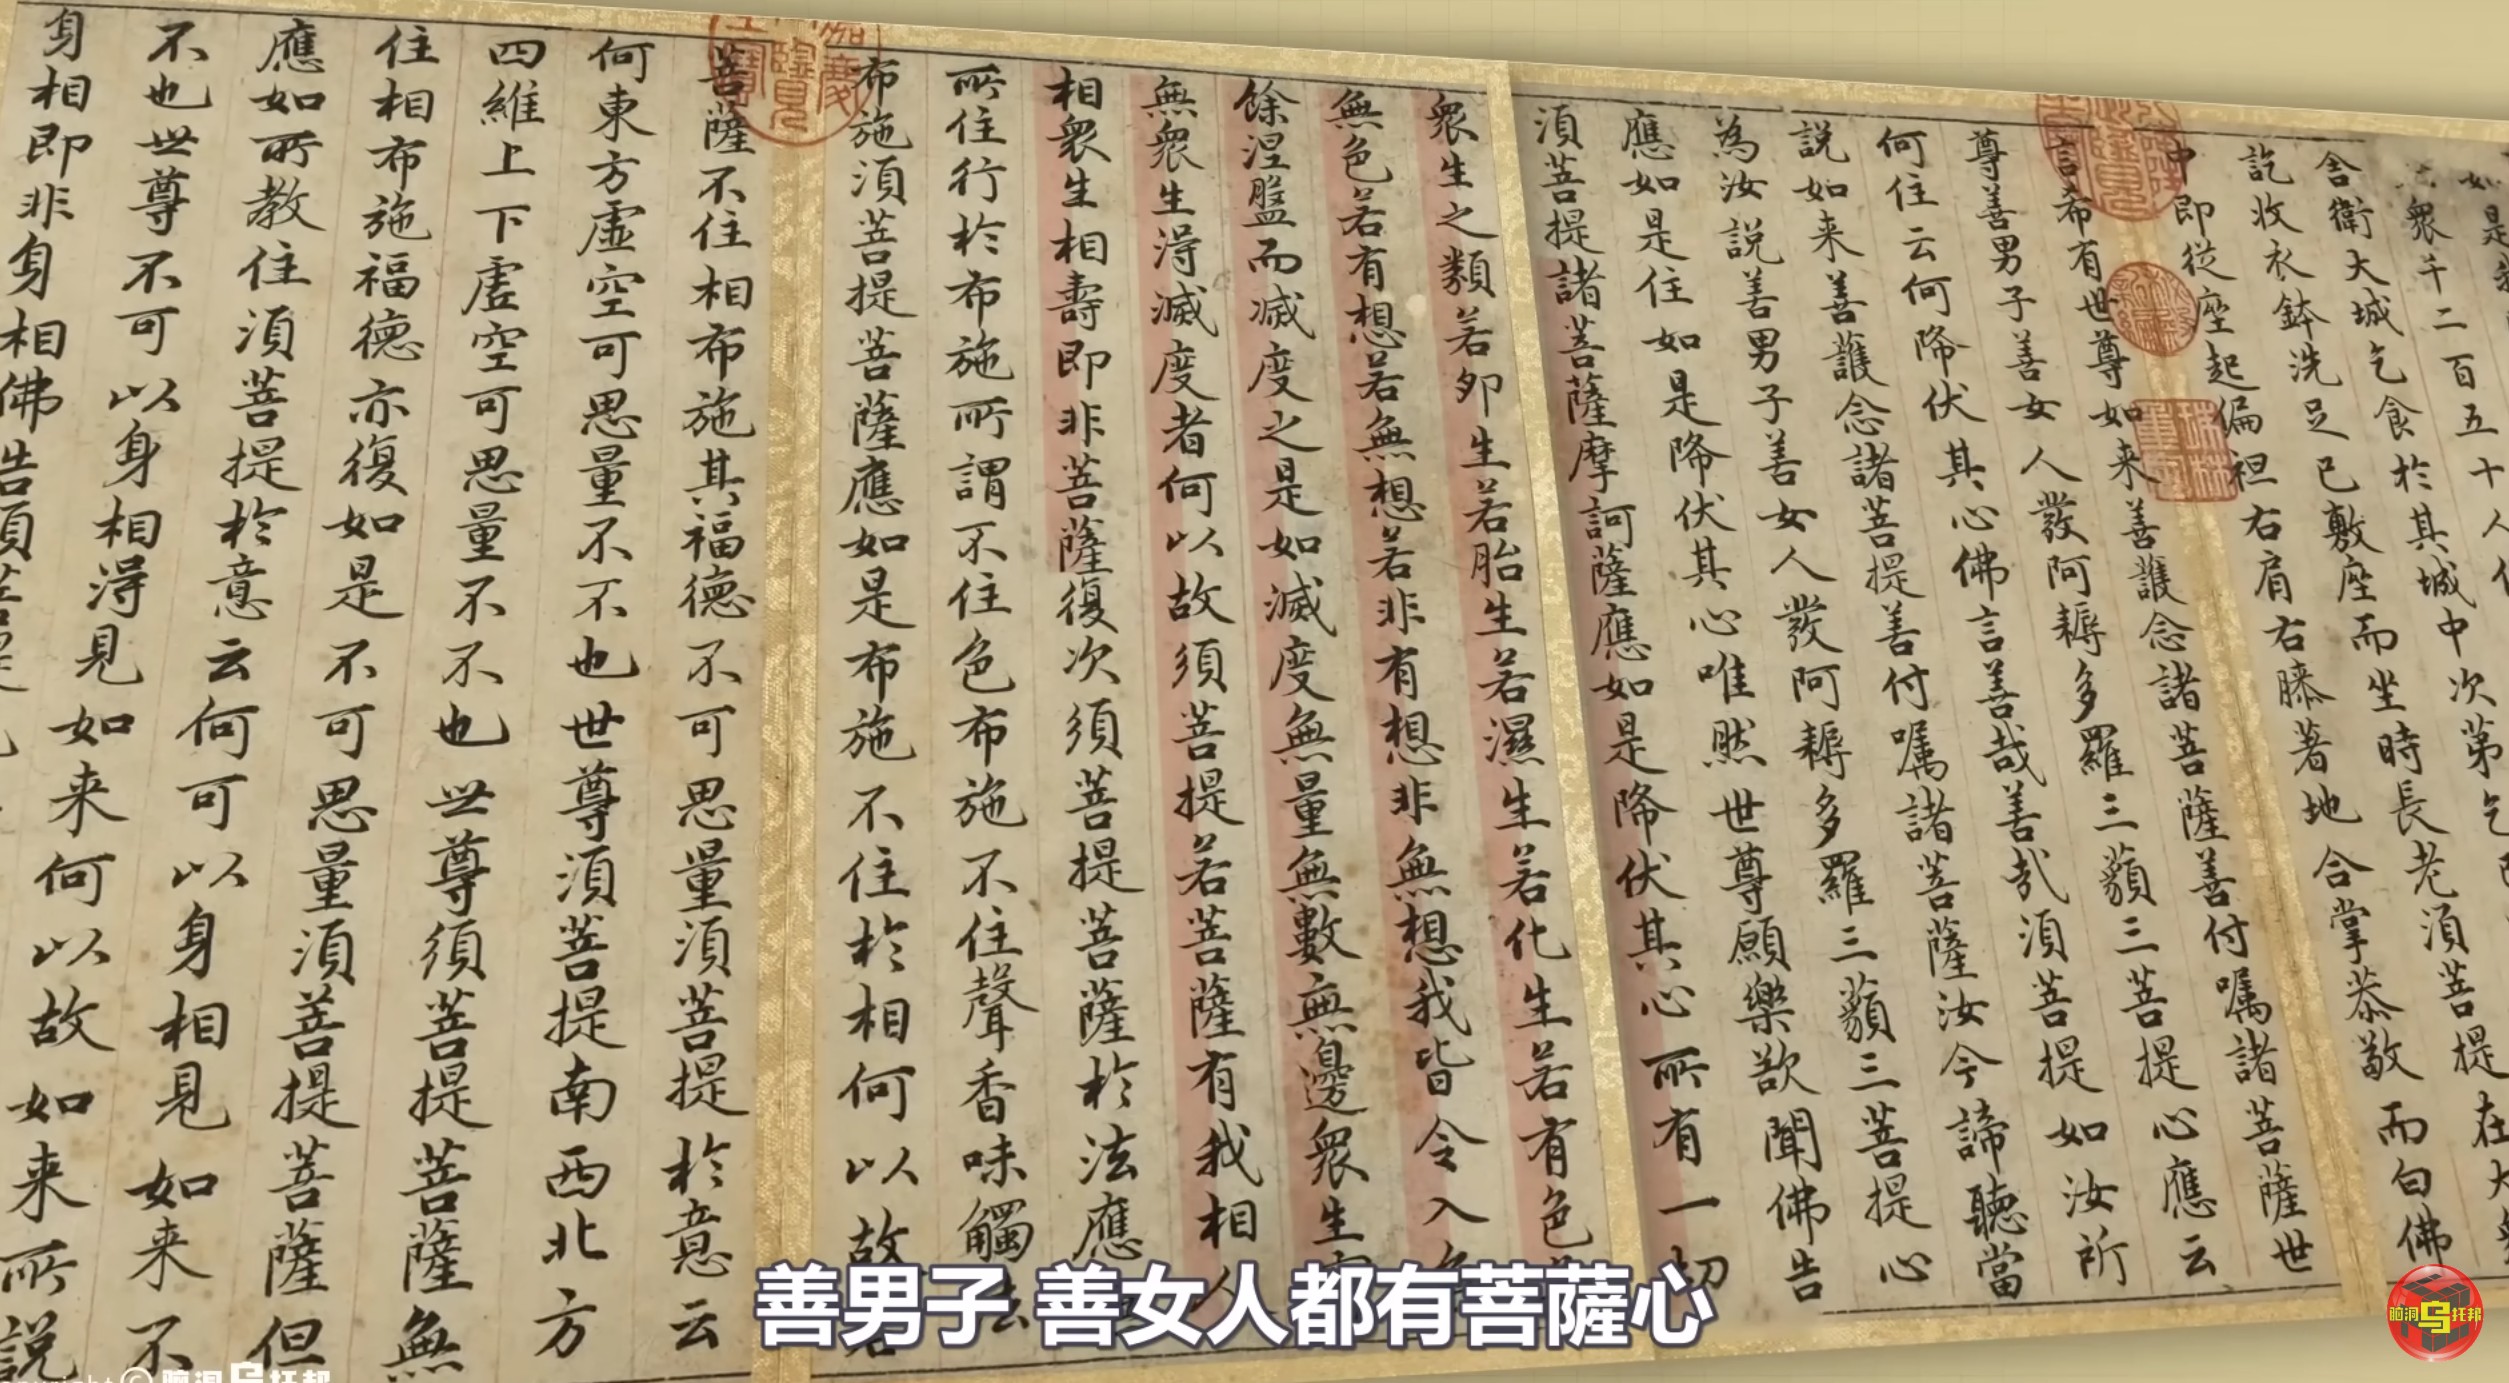 如是
衆千二百五十人
舍衛大城乞食於其城中次第乞
訖收衣鉢洗足已敷座而坐時長老須菩提在大
中即從座起偏袒右肩右膝著地合掌恭敬而白佛
言希有世尊如来善護念諸菩薩善付嘱諸菩薩世
尊善男子善女人發阿耨多羅三藐三菩提心應云
何住云何降伏其心佛言善哉善哉須菩提如汝所
説如来善護念諸菩提善付嘱諸菩薩汝今諦聽當
為汝説善男子善女人發阿耨多羅三藐三菩提心
應如是住如是降伏其心唯然世尊願樂欲聞佛告
須菩提諸菩薩摩訶薩應如是降伏其心所有一切
衆生之類若卵生若胎生若濕生若化生若有色
無色若有想若無想若非有想非無想我皆令入
餘涅盤而滅度之是如滅度無量無數無邊衆生
無衆生得滅度者何以故須菩提若菩薩有我相人
相衆生相壽即非菩薩復次須菩提菩薩於法應
所住行於布施所謂不住色布施不住聲香味觸
布施須菩提菩薩應如是布施不住於相何以故
菩薩不住相布施其福德不可思量須菩提於意云
何東方虚空可思量不不也世尊須菩提南西北方
四維上下虚空可思量不不也世尊須菩提菩薩無
住相布施福德亦復如是不可思量須菩提菩薩但
應如所教住須菩提於意云何可以身相見如来不
不也世尊不可以身相得見如来何以故如来所説
身相即非身相佛告須菩提
善男子 善女人都有菩薩心
脑洞乌托邦
© 脑洞乌托邦